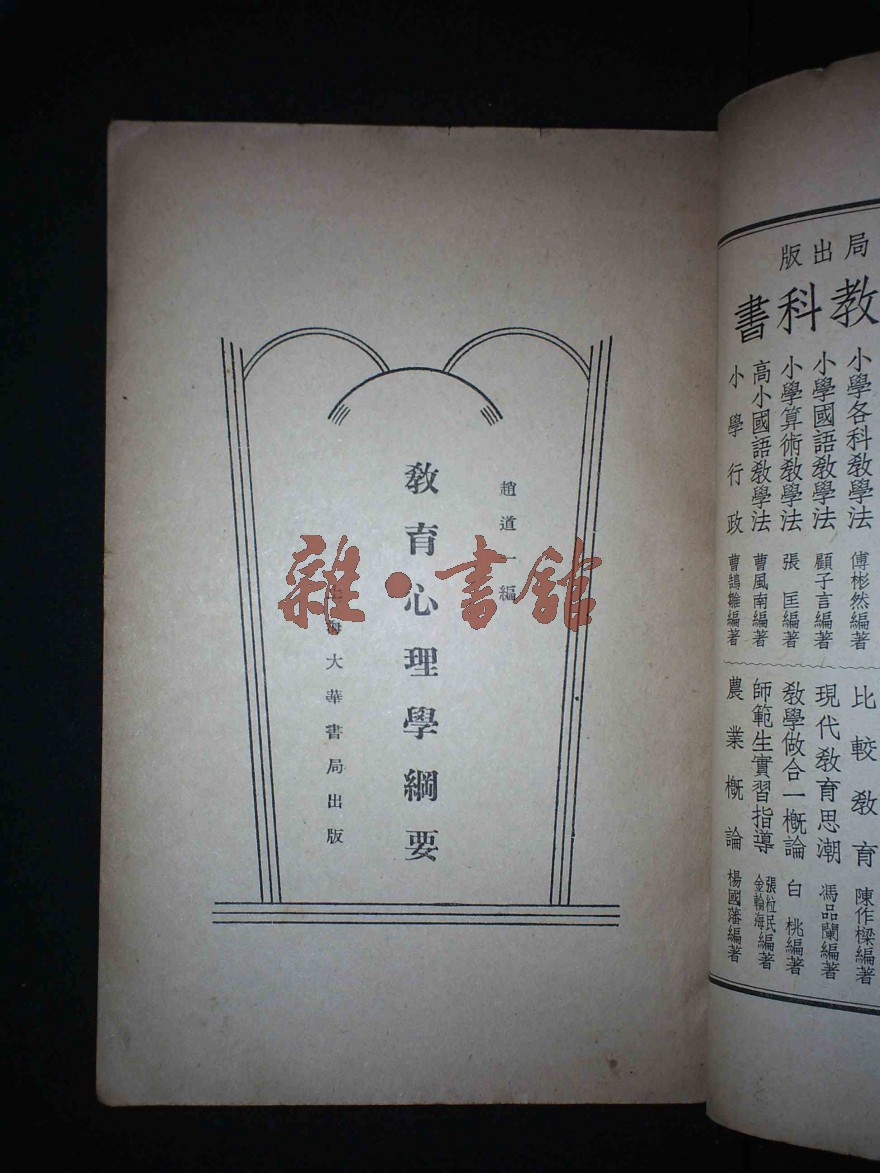 局出版
教科書
小學各科教學法 傅彬然編著
小學國語教學法 顧子言編著
小學算術教學法 張匡編著
高小國語教學法 曹風南編著
小學行政 曹鵠雛編著
比較教育 陳作樑編著
現代教育思潮 馮品蘭編著
教學做合一概論 白桃編著
師範生實習指導 張粒民 金輪海 編著
農業概論 楊國藩編著
趙道一編
教育心理學綱要
上海大華書局出版
雜·書館